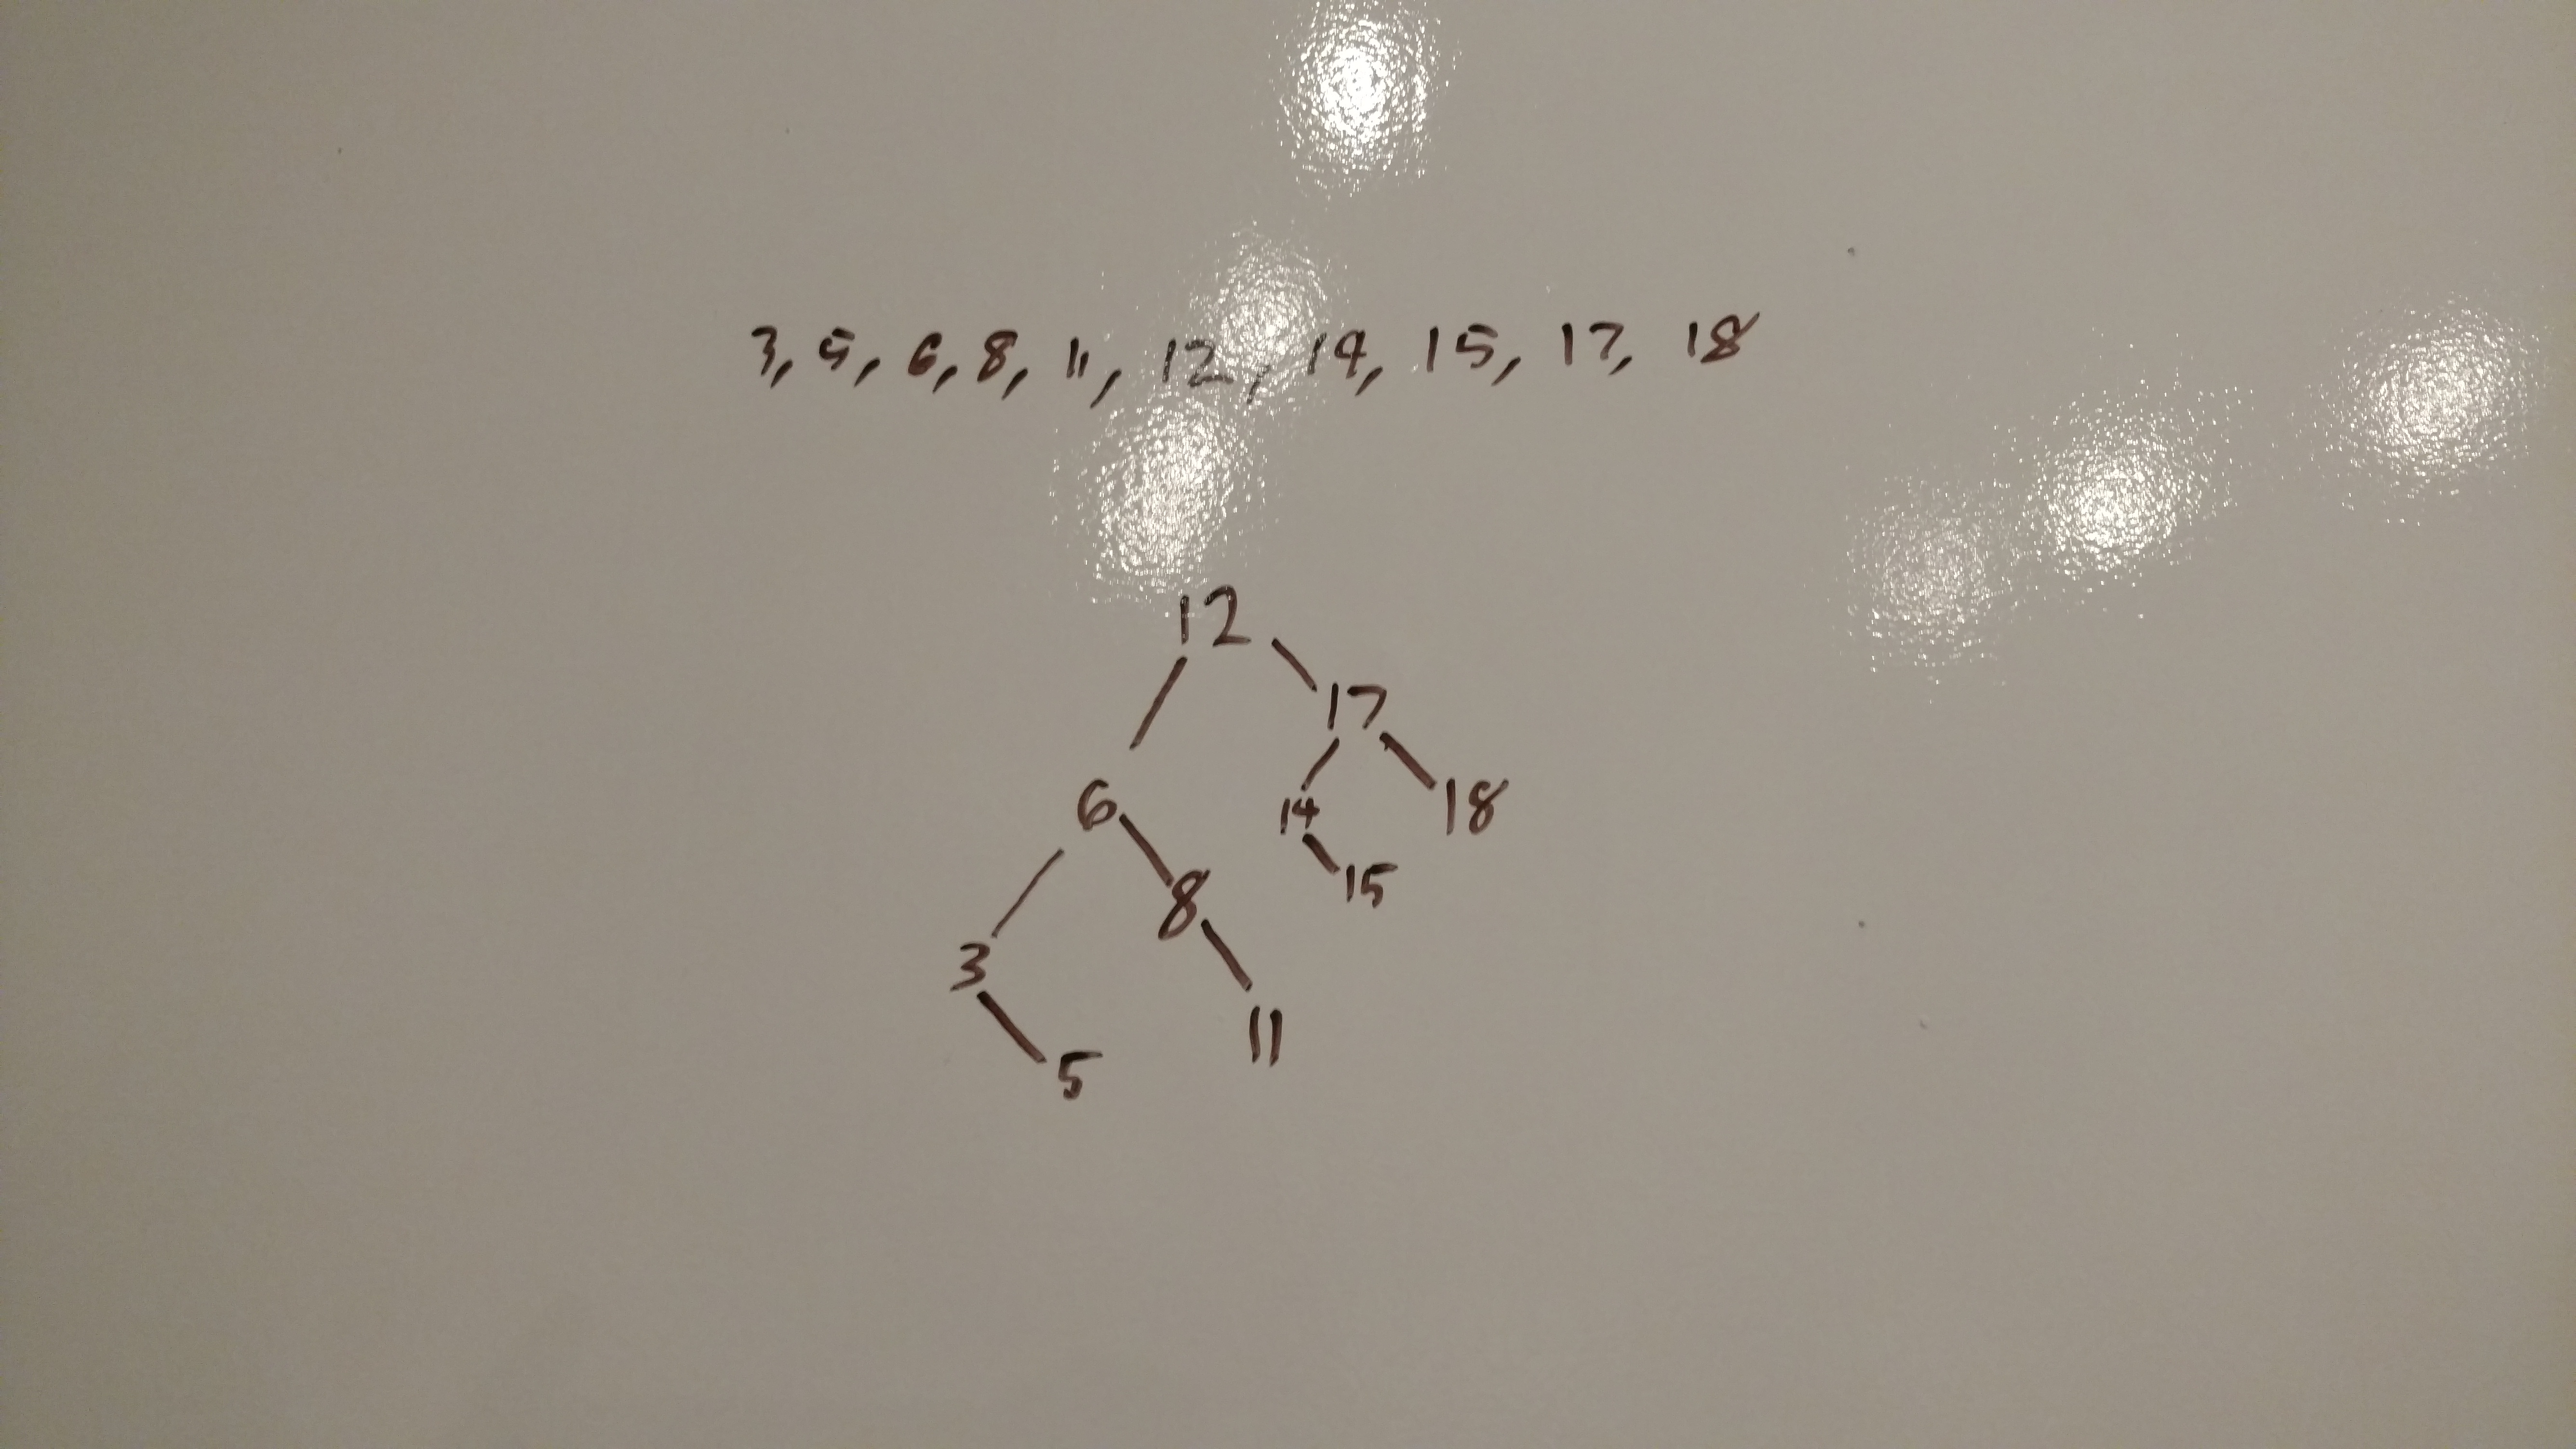 3, 5, 6, 8, 11, 12, 14, 15, 17, 18
12
17
6
14
18
8
15
3
11
5